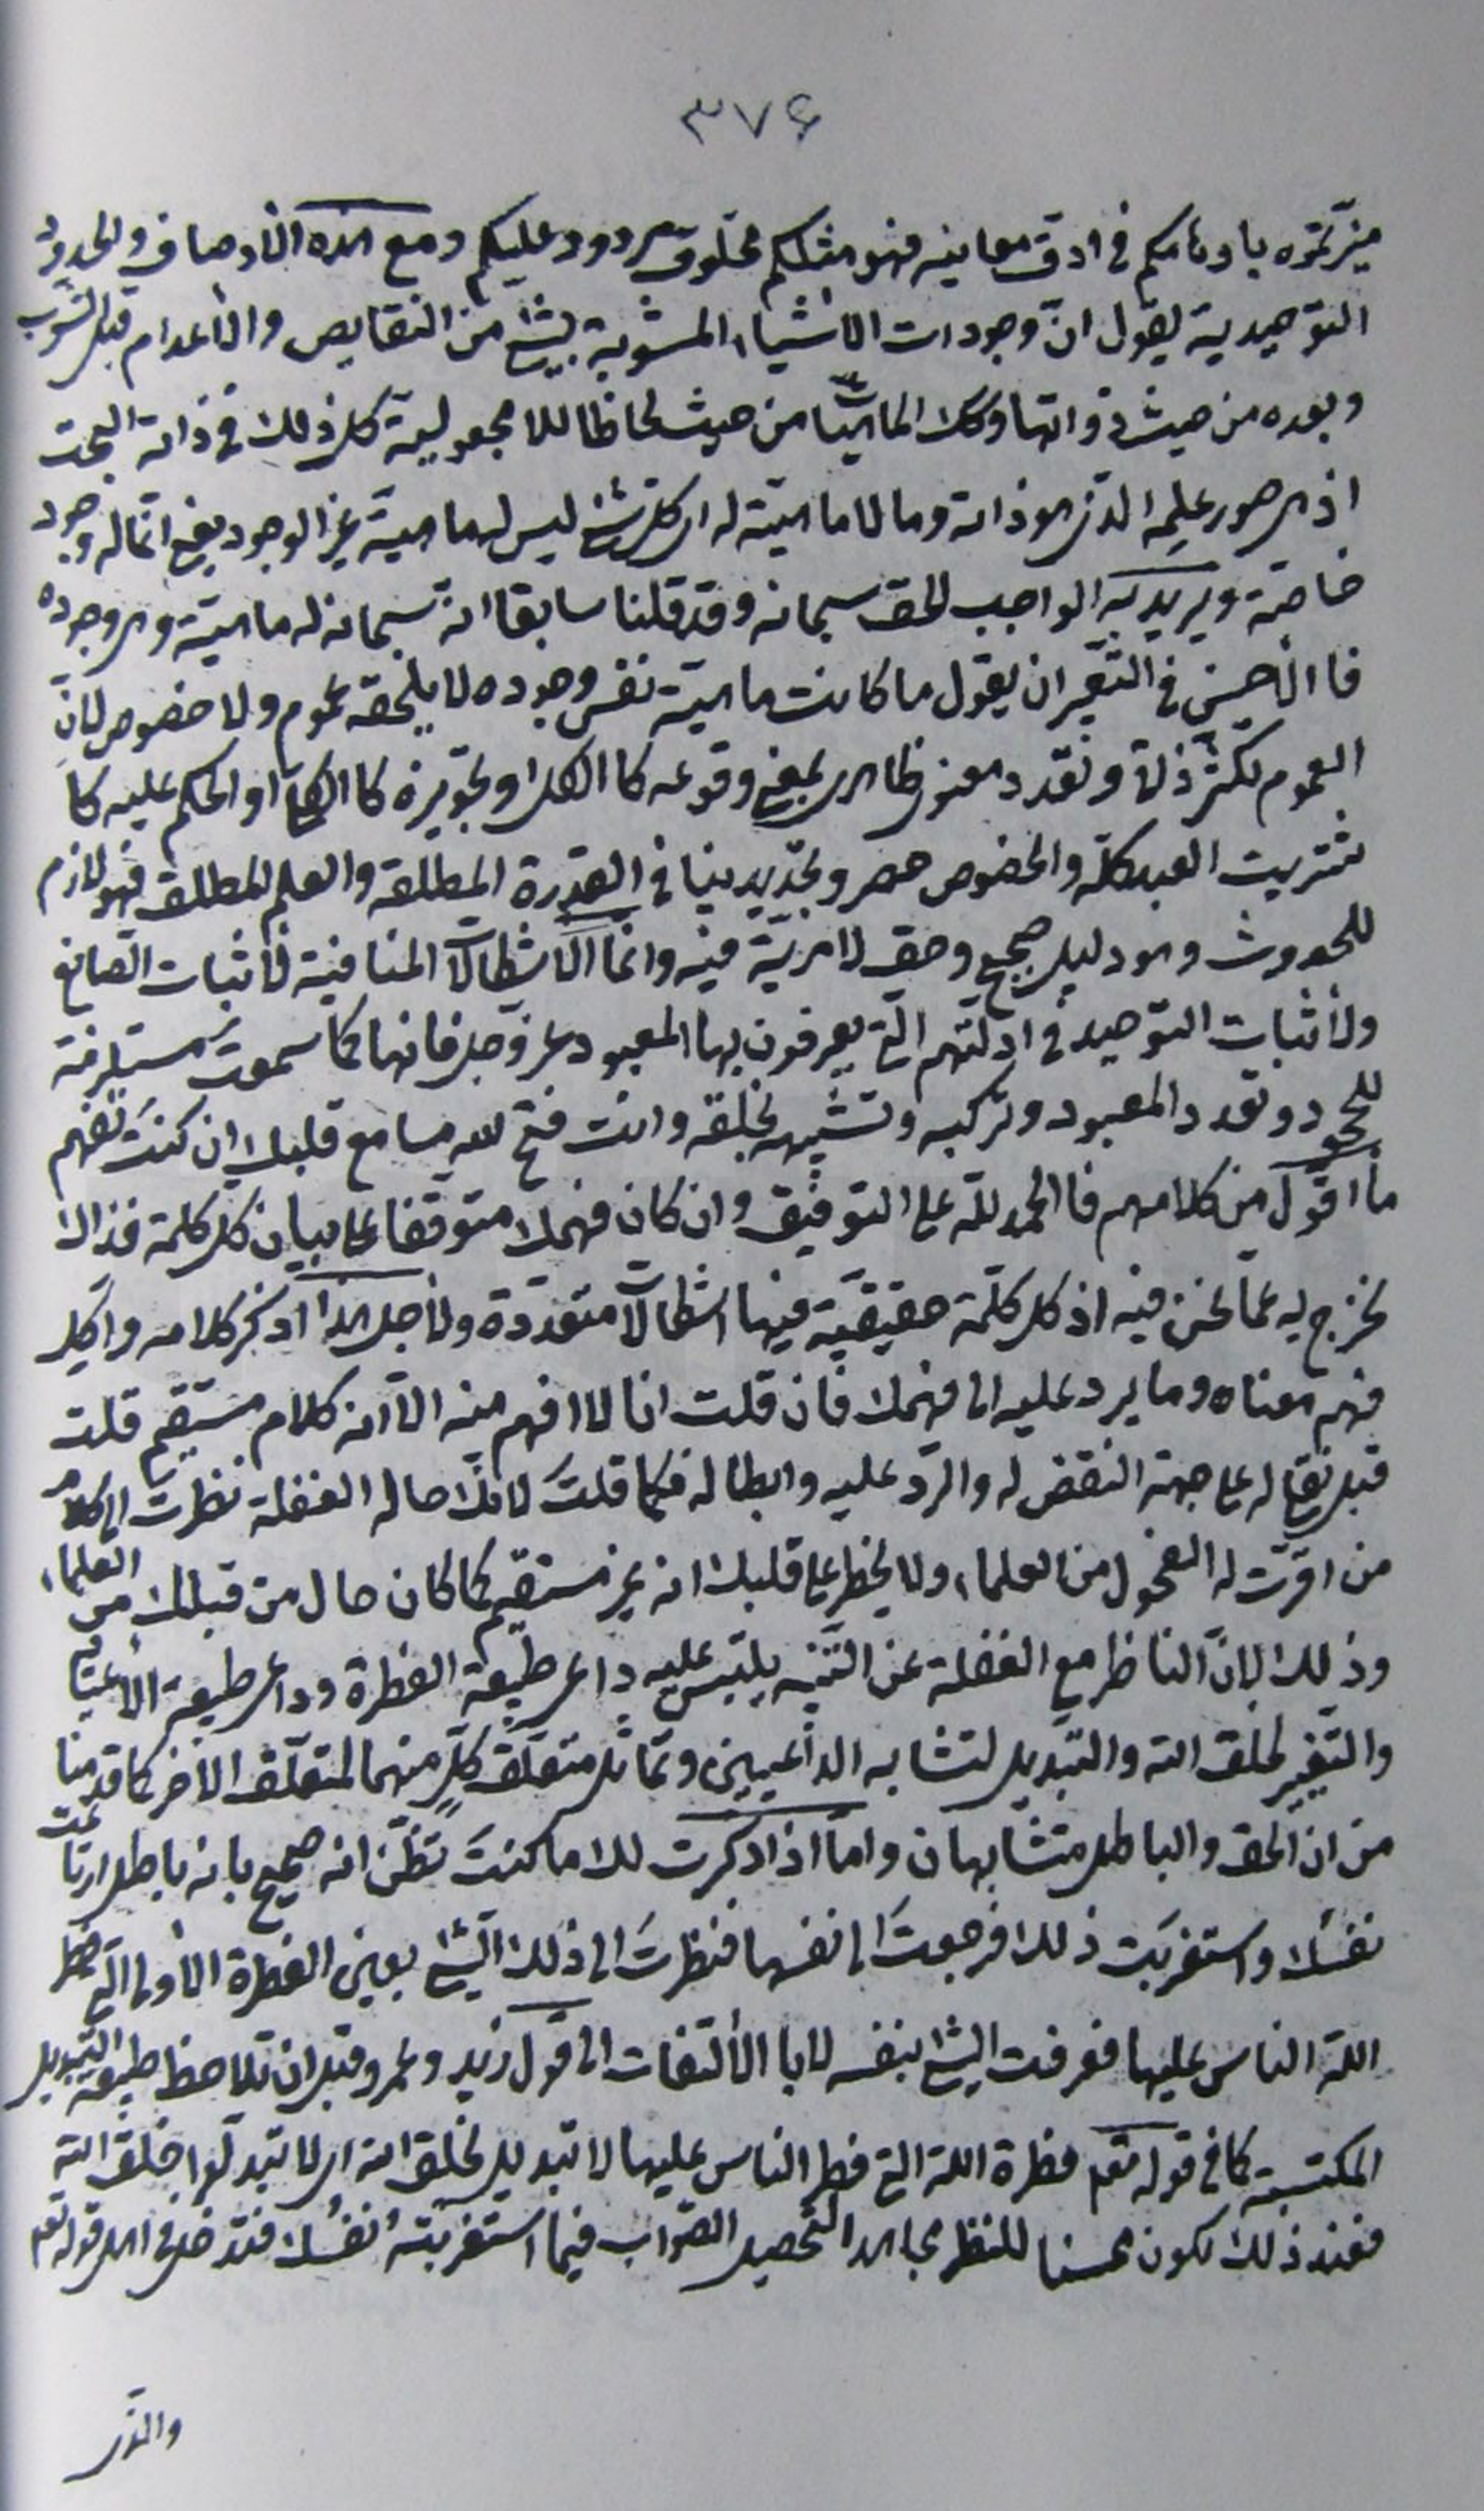 ٣٧۶
ميّزتموه باوهامكم في ادق معانيه فهو مثلكم مخلوق مردود عليكم ومع هذه الأوصاف والحدود
التوحيدية يقول انّ وجودات الاشياء المشوبة بشئ من النقايص والأعدام قبل الشوب
وبعده من حيث ذواتها وكك الماهيّات من حيث لحاظ اللامجعولية كل ذلك في ذاته البحت
اذ هي صور علمه الذي هو ذاته وما لا ماهيّة له اي كل شئ ليس له ماهية غير الوجود يعني انّما له وجود
خاصة ويريد به الواجب الحق سبحانه وقد قلنا سابقا انه سبحانه له ماهيّة وهي وجوده
فاالأحسن في التعبير ان يقول ما كانت ماهيته نفس وجوده لا يلحقه عموم ولا خصوص لانّ
العموم تكثر ذلة وتعدد معنوي ظاهري بمعنى وقوعه كا الكل او تجويزه كا الكلي او الحكم عليه كا
شتريت العبد كلّه والخصوص حصر وتحديد ينافي القدرة المطلقة والعلم المطلق فهو لازم
للحدوث وهو دليل صحيح وحق لا مزيّة فيه وانما الاشكالات المنافية لأثبات الصانع
ولأثبات التوحيد في ادلتهم التي يعرفون بها المعبود عز وجل فانها كما سمعت مستلزمة
للحدود وتعدد المعبود وتركبه وتشبيهه بخلقه وانت فتح الله مسامع قلبك ان كنت تفهم
ما اقول من كلامهم فا الحمد للّه على التوفيق وان كان فهمك متوقفا على بيان كل كلمة فذاك
يخرج به عما نحن فيه اذ كل كلمة حقيقيّة فيها اشكالات متعددة ولأجل هذا اذكر كلامه واكل
فهم معناه وما يرد عليه الى فهمك فان قلت انا لا افهم منه الّا انه كلام مستقيم قلت
قبل نقلي له على جهة النقض له والردّ عليه وابطاله فكما قلتَ لانك حالة الغفلة نظرت الى كلام
من اقرّت له الفحول من العلماء ولا يخطر على قلبك انه غير مستقيم كما كان حال من قبلك من العلماء
وذلك لانّ الناظر مع الغفلة عن التنبه يلتبس عليه داعي طبيعة الفطرة وداعي طبيعة الأعتياد
والتغيير لخلق الله والتبديل لتشابه الداعيين وتماثل متعلّق كلٍّ منهما لمتعلّق الآخر كما قدمنا
من ان الحق والباطل متشابهان وامّا اذا ذكرت لك ما كنتَ تظن انه صحيح بانه باطل ارتاعت
نفسك واستغربَت ذلك فرجعتَ الى نفسها فنظرتَ الى ذلك الشئ بعين الفطرة الأولى التي فطر
اللّه الناس عليها فعرفت الشئ بنفسه لا با الألتفات الى قول زيد وعمرو قبل ان تلاحظ طبيعة التبديل
المكتسبة كما في قوله تعم فطرة اللّه التي فطر الناس عليها لا تبديل لخلق الله اي لا تبدلوا خلق الله
فعند ذلك تكون محسنا للنظر مجاهدا لتحصيل الصّواب فيما استغربته نفسك فتدخل في اهل قوله تعم
والذي